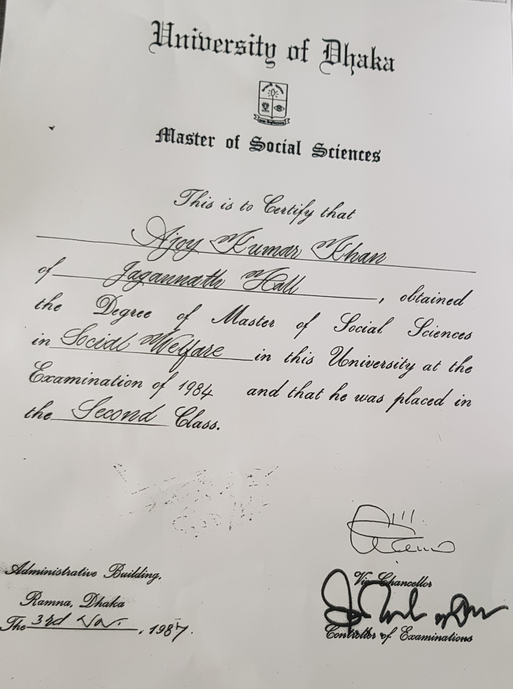 University of Dhaka
Master of Social Sciences
This is to Certify that
Ajoy Kumar Khan
of Jagannath Hall, obtained
the Degree of Master of Social Sciences
in Social Welfare in this University at the
Examination of 1984 and that he was placed in
the Second Class.
Administrative Building.
Ramna, Dhaka
The 3rd Nov. , 1987.
Vice Chancellor
Controller of Examinations